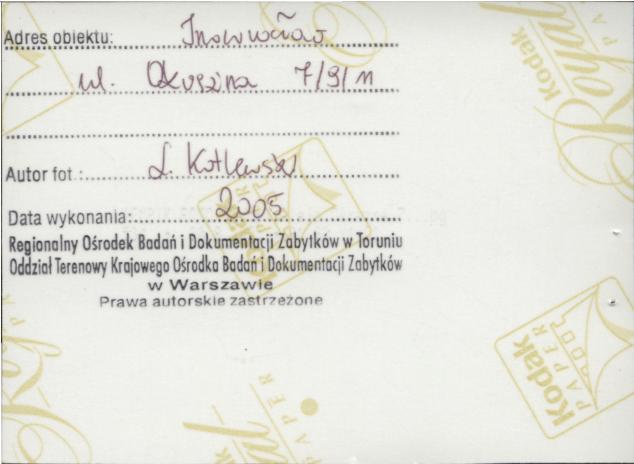 Adres obiektu: Inowrocław
ul. 7/9/11
Autor fot.: Kotlewski
Data wykonania: 2005
Regionalny Ośrodek Badań i Dokumentacji Zabytków w Toruniu
Oddział Terenowy Krajowego Ośrodka Badań i Dokumentacji Zabytków
w Warszawie
Prawa autorskie zastrzeżone
Kodak
PAPER
Royal
Kodak
PAPER